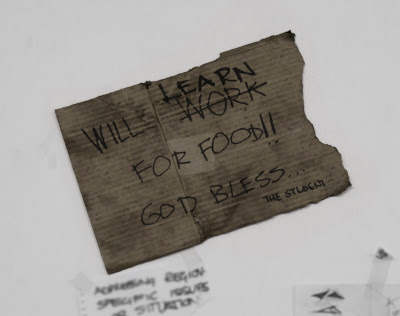 LEARN
WILL WORK
FOR FOOD!!
GOD BLESS...
THE STUDENT
ADDRESSING REGION-
SPECIFIC ISSUES
OR SITUATION